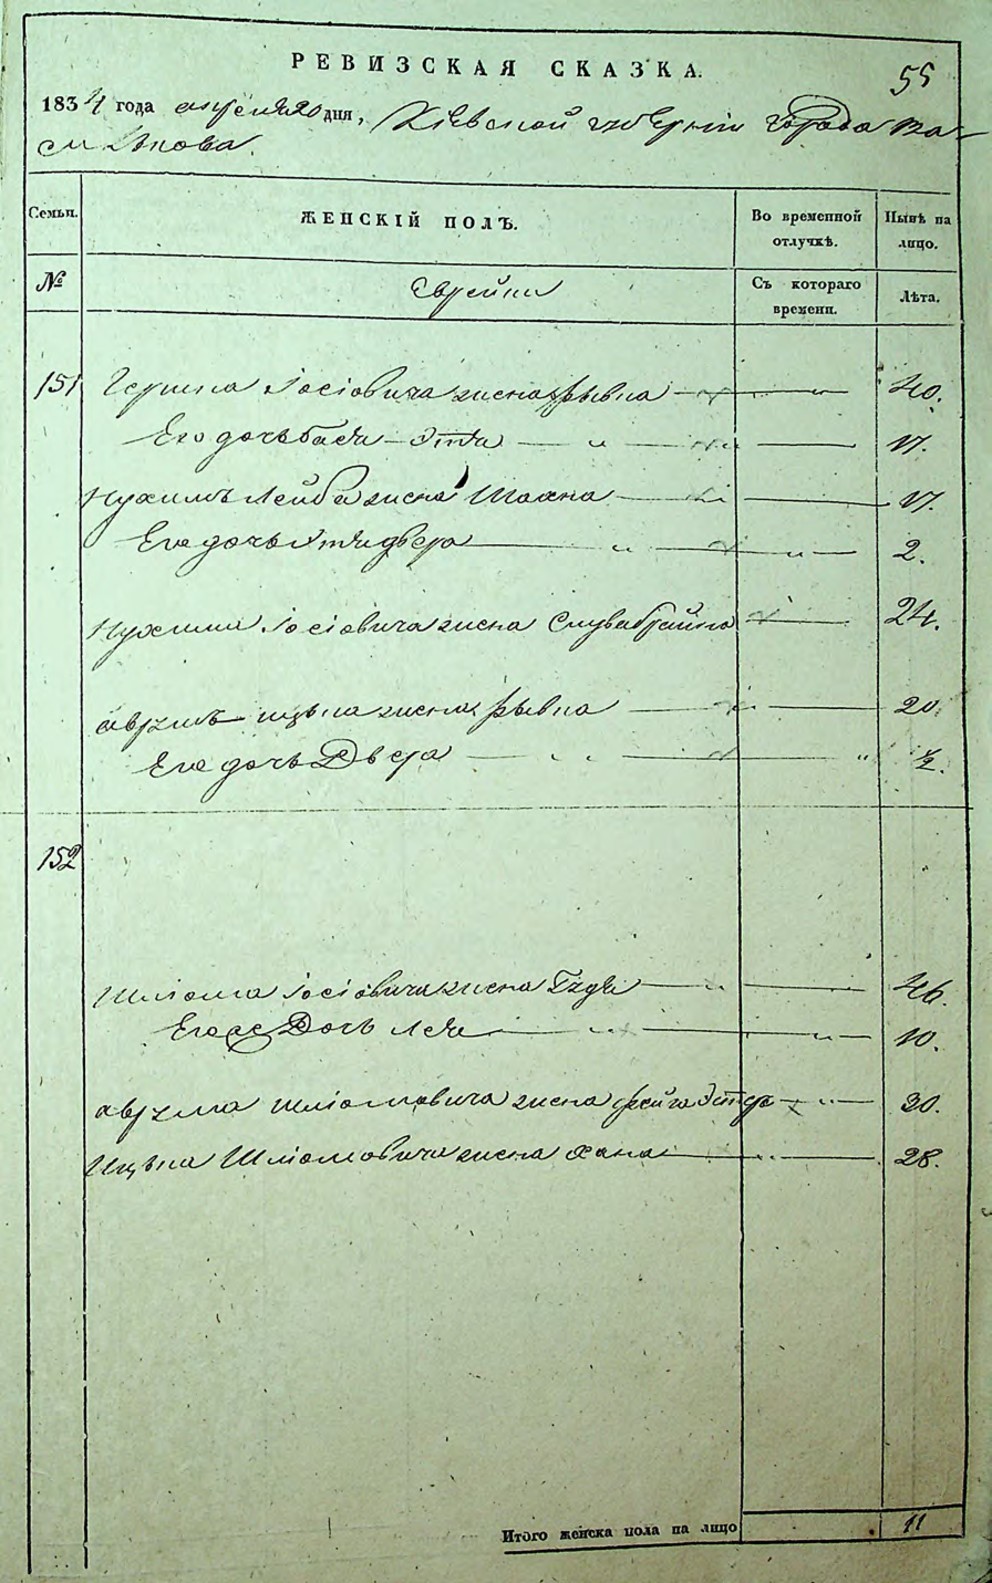 РЕВИЗСКАЯ СКАЗКА.
55
1834 года апреля 20 дня, Кіевской губерніи города Ва-
силькова.
Семьи.
ЖЕНСКІЙ ПОЛЪ.
Во временной отлучкѣ.
Нынѣ на лицо.
№
Еврейки
Съ котораго времени.
Лѣта.
151 Гершка Іосіовича жена Рывка 40.
Его дочь Бася-Этя 17.
Нухимъ Лейба жена 17.
Его дочь двера 2.
Нухима Іосіовича жена 24.
Аврумъ Ицька жена Рывка 20.
Его дочь Двера ½.
152
Шліома Іосіовича жена 46.
Его же Дочь Лея 10.
Аврума Шліомовича жена Фейга Эстра 30.
Ицька Шліомовича жена Хана 28.
Итого женска пола на лицо 11